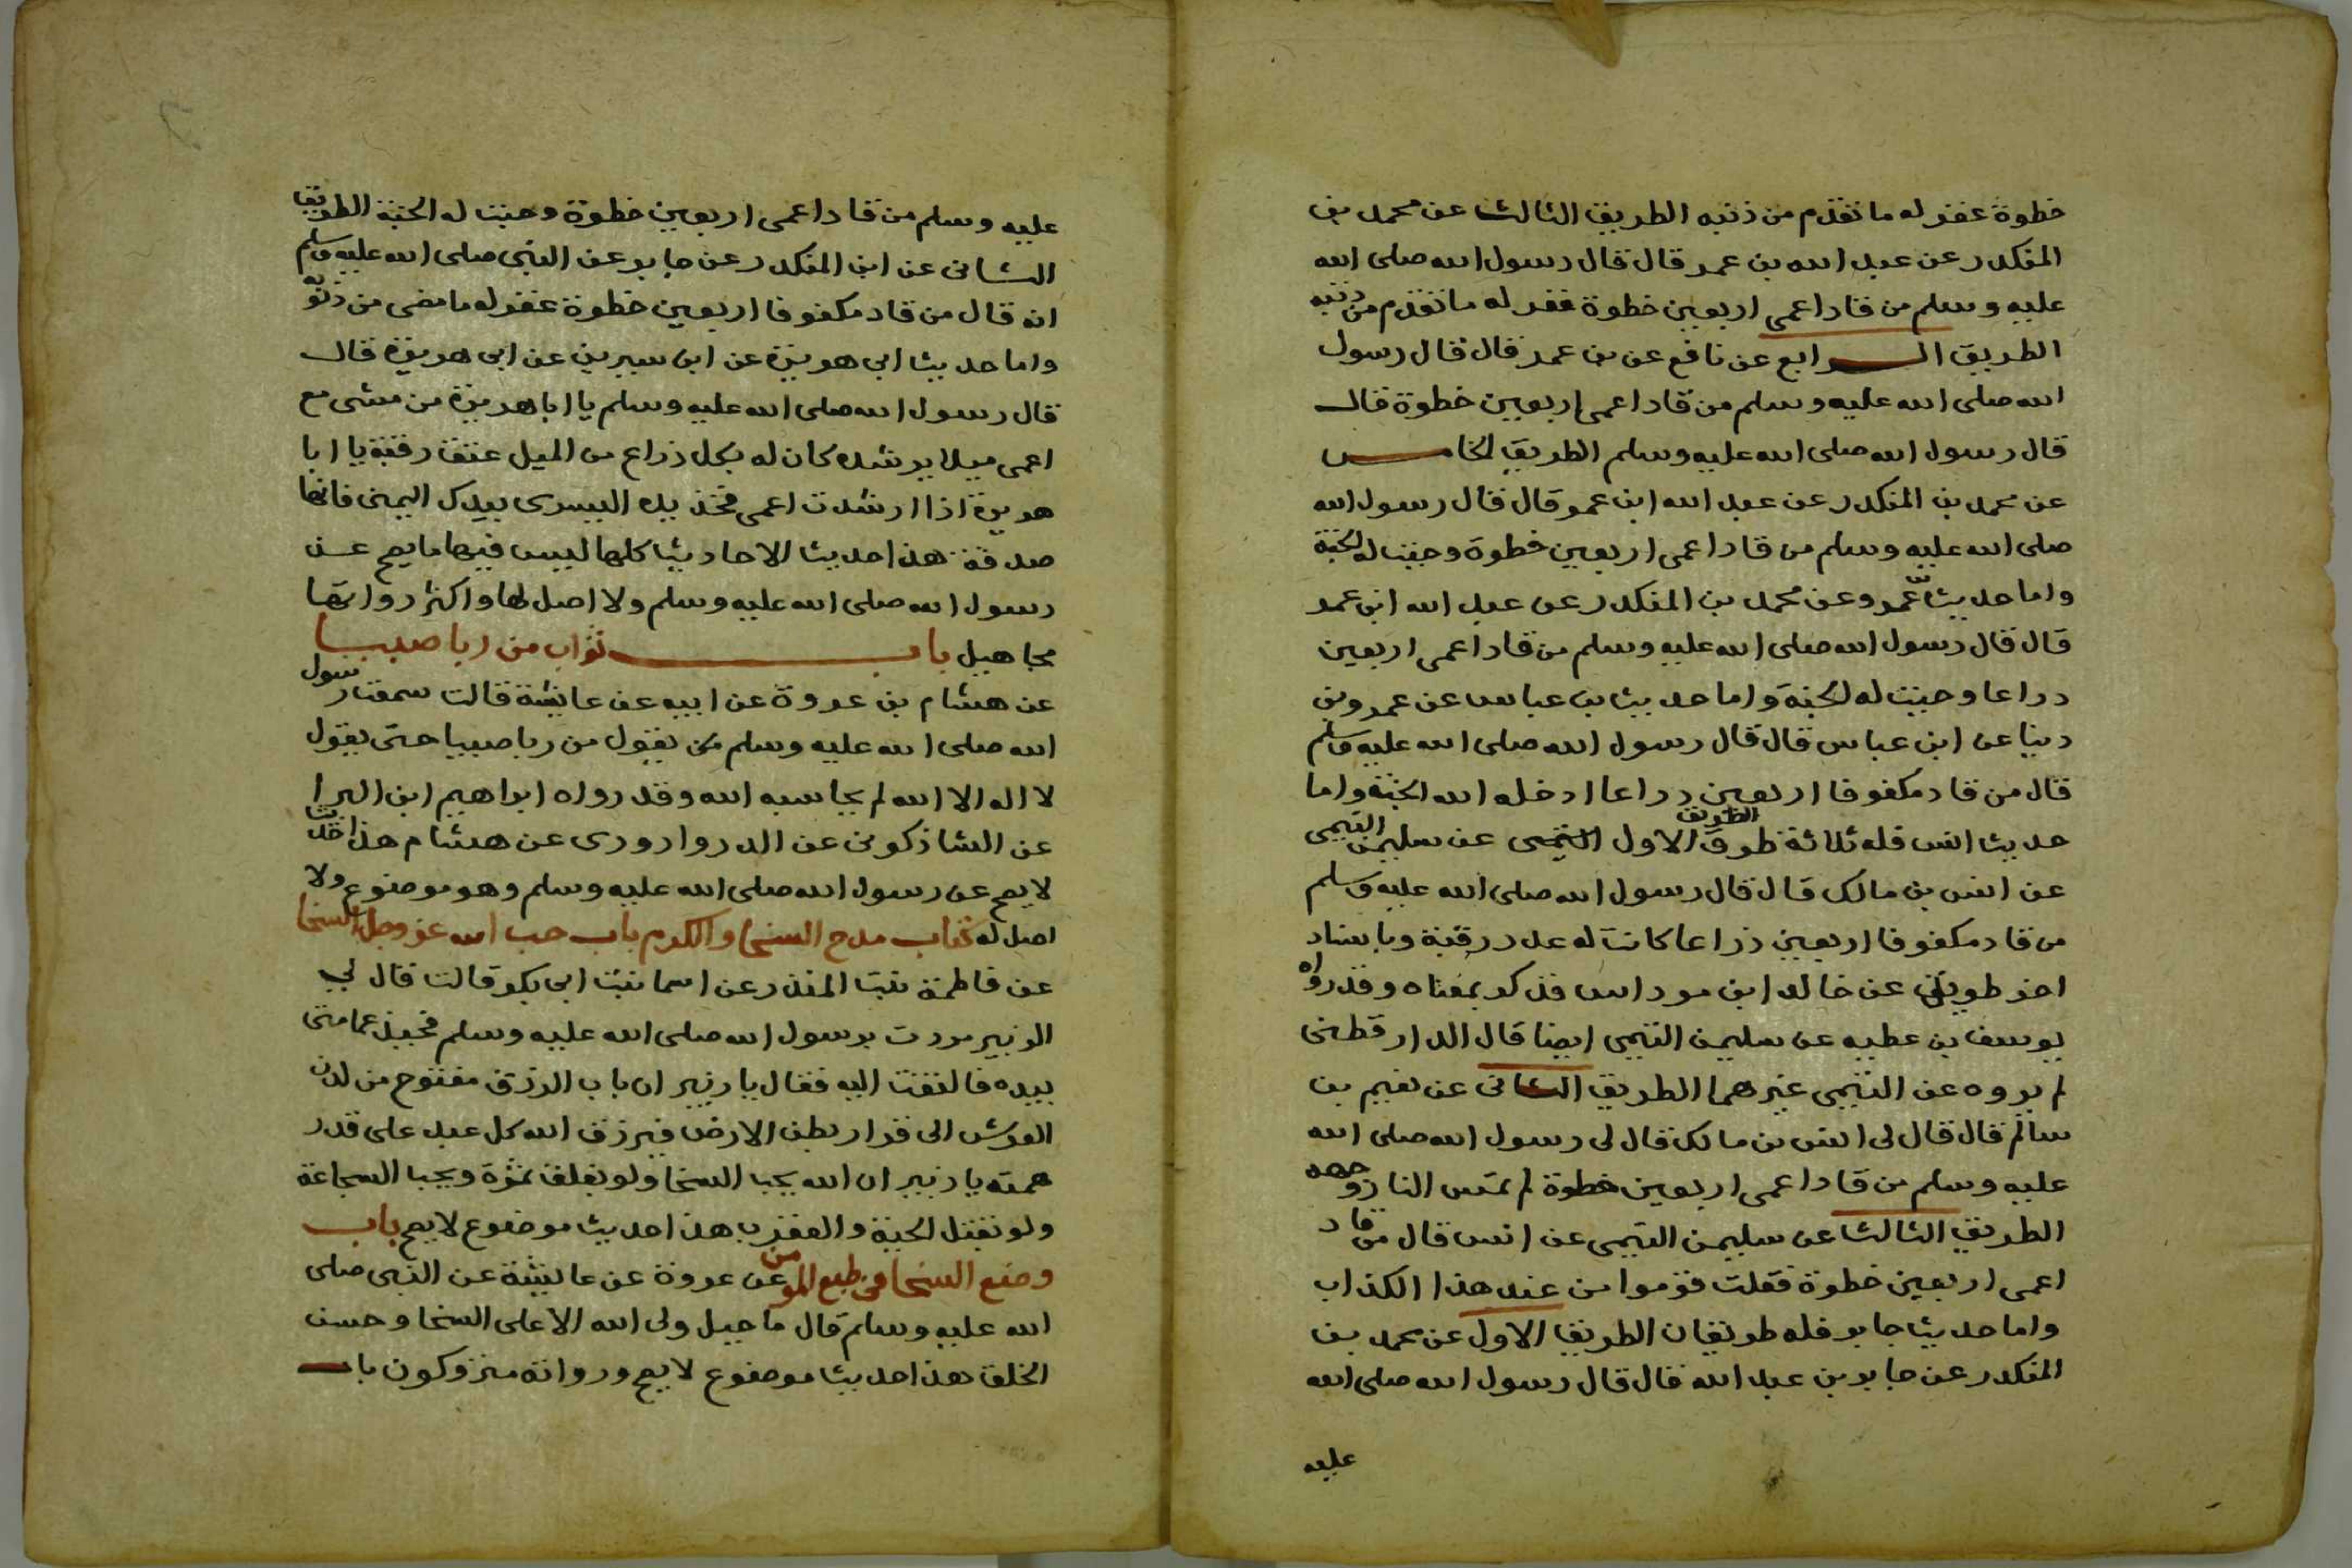 خطوة غفر له ما تقدم من ذنبه الطريق الثالث عن محمد بن
المنكدر عن عبد الله بن عمر قال قال رسول الله صلى الله
عليه وسلم من قاد اعمى اربعين خطوة غفر له ما تقدم من ذنبه
الطريق الرابع عن نافع عن بن عمر قال قال رسول
الله صلى الله عليه وسلم من قاد اعمى اربعين خطوة قال
قال رسول الله صلى الله عليه وسلم الطريق الخامس
عن محمد بن المنكدر عن عبد الله ابن عمر قال قال رسول الله
صلى الله عليه وسلم من قاد اعمى اربعين خطوة وجبت له الجنة
واما حديث عمرو عن محمد بن المنكدر عن عبد الله ابن عمر
قال قال رسول الله صلى الله عليه وسلم من قاد اعمى اربعين
دراعا وجبت له الجنة واما حديث بن عباس عن عمرو بن
دينا عن ابن عباس قال قال رسول الله صلى الله عليه وسلم
قال من قاد مكفوفا اربعين دراعا ادخله الله الجنة واما
حديث انس فله ثلاثة طرق الطريق الاول عن سليمن التيمى
عن انس بن مالك قال قال رسول الله صلى الله عليه وسلم
من قاد مكفوفا اربعين ذراعا كانت له عدد رقبة وباسناد
اخر عن خالد ابن مرداس فذكر بمعناه وقد رواه
يوسف بن عطيه عن سليمن التيمى ايضا قال الدارقطنى
لم يروه عن التيمى غيرهما الطريق الثانى عن نعيم بن
سالم قال قال لى انس بن مالك قال لى رسول الله صلى الله
عليه وسلم من قاد اعمى اربعين خطوة لم تمس النار وجهه
الطريق الثالث عن سليمن التيمى عن انس قال من قاد
اعمى اربعين خطوة فقلت قوموا من عند هذا الكذاب
واما حديث جابر فله طريقان الطريق الاول عن محمد بن
المنكدر عن جابر بن عبد الله قال قال رسول الله صلى الله
عليه
عليه وسلم من قاد اعمى اربعين خطوة وجبت له الجنة الطريق
الثانى عن ابن المنكدر عن جابر عن النبى صلى الله عليه وسلم
انه قال من قاد مكفوفا اربعين خطوة غفر له ما مضى من ذنوبه
واما حديث ابى هريرة عن ابن سيرين عن ابى هريرة قال
قال رسول الله صلى الله عليه وسلم يا ابا هريرة من مشى مع
اعمى ميلا يرشده كان له بكل ذراع من الميل عتق رقبة يا ابا
هريرة اذا ارشدت اعمى فخذ بيده اليسرى بيدك اليمنى فانها
صدقة هذا حديث الاحاديث كلها ليس فيها ما يصح عن
رسول الله صلى الله عليه وسلم ولا اصل لها واكثر رواتها
مجاهيل باب ثواب من ربا صبيا
عن هشام بن عروة عن ابيه عن عايشة قالت سمعت رسول
الله صلى الله عليه وسلم يقول من ربا صبيا حتى يقول
لا اله الا الله لم يحاسبه الله وقد رواه ابراهيم ابن البرا
عن الشاذكونى عن الدروارودى عن هشام هذا حديث
لا يصح عن رسول الله صلى الله عليه وسلم وهو موضوع ولا
اصل له كتاب مدح السخا والكرم باب حب الله عز وجل السخا
عن فاطمة بنت المنذر عن اسما بنت ابى بكر قالت قال لي
الزبير مررت برسول الله صلى الله عليه وسلم فجبذ عمامتى
بيده فالتفت اليه فقال يا زبير ان باب الرزق مفتوح من لدن
العرش الى قرار بطن الارض فيرزق الله كل عبد على قدر
همته يا زبير ان الله يحب السخا ولو بفلق تمرة ويحب الشجاعة
ولو بقتل الحية والعقرب هذا حديث موضوع لا يصح باب
وضع السخا فى طبع المومن عن عروة عن عايشة عن النبى صلى
الله عليه وسلم قال ما جبل ولى الله الا على السخا وحسن
الخلق هذا حديث موضوع لا يصح ورواته متروكون باب